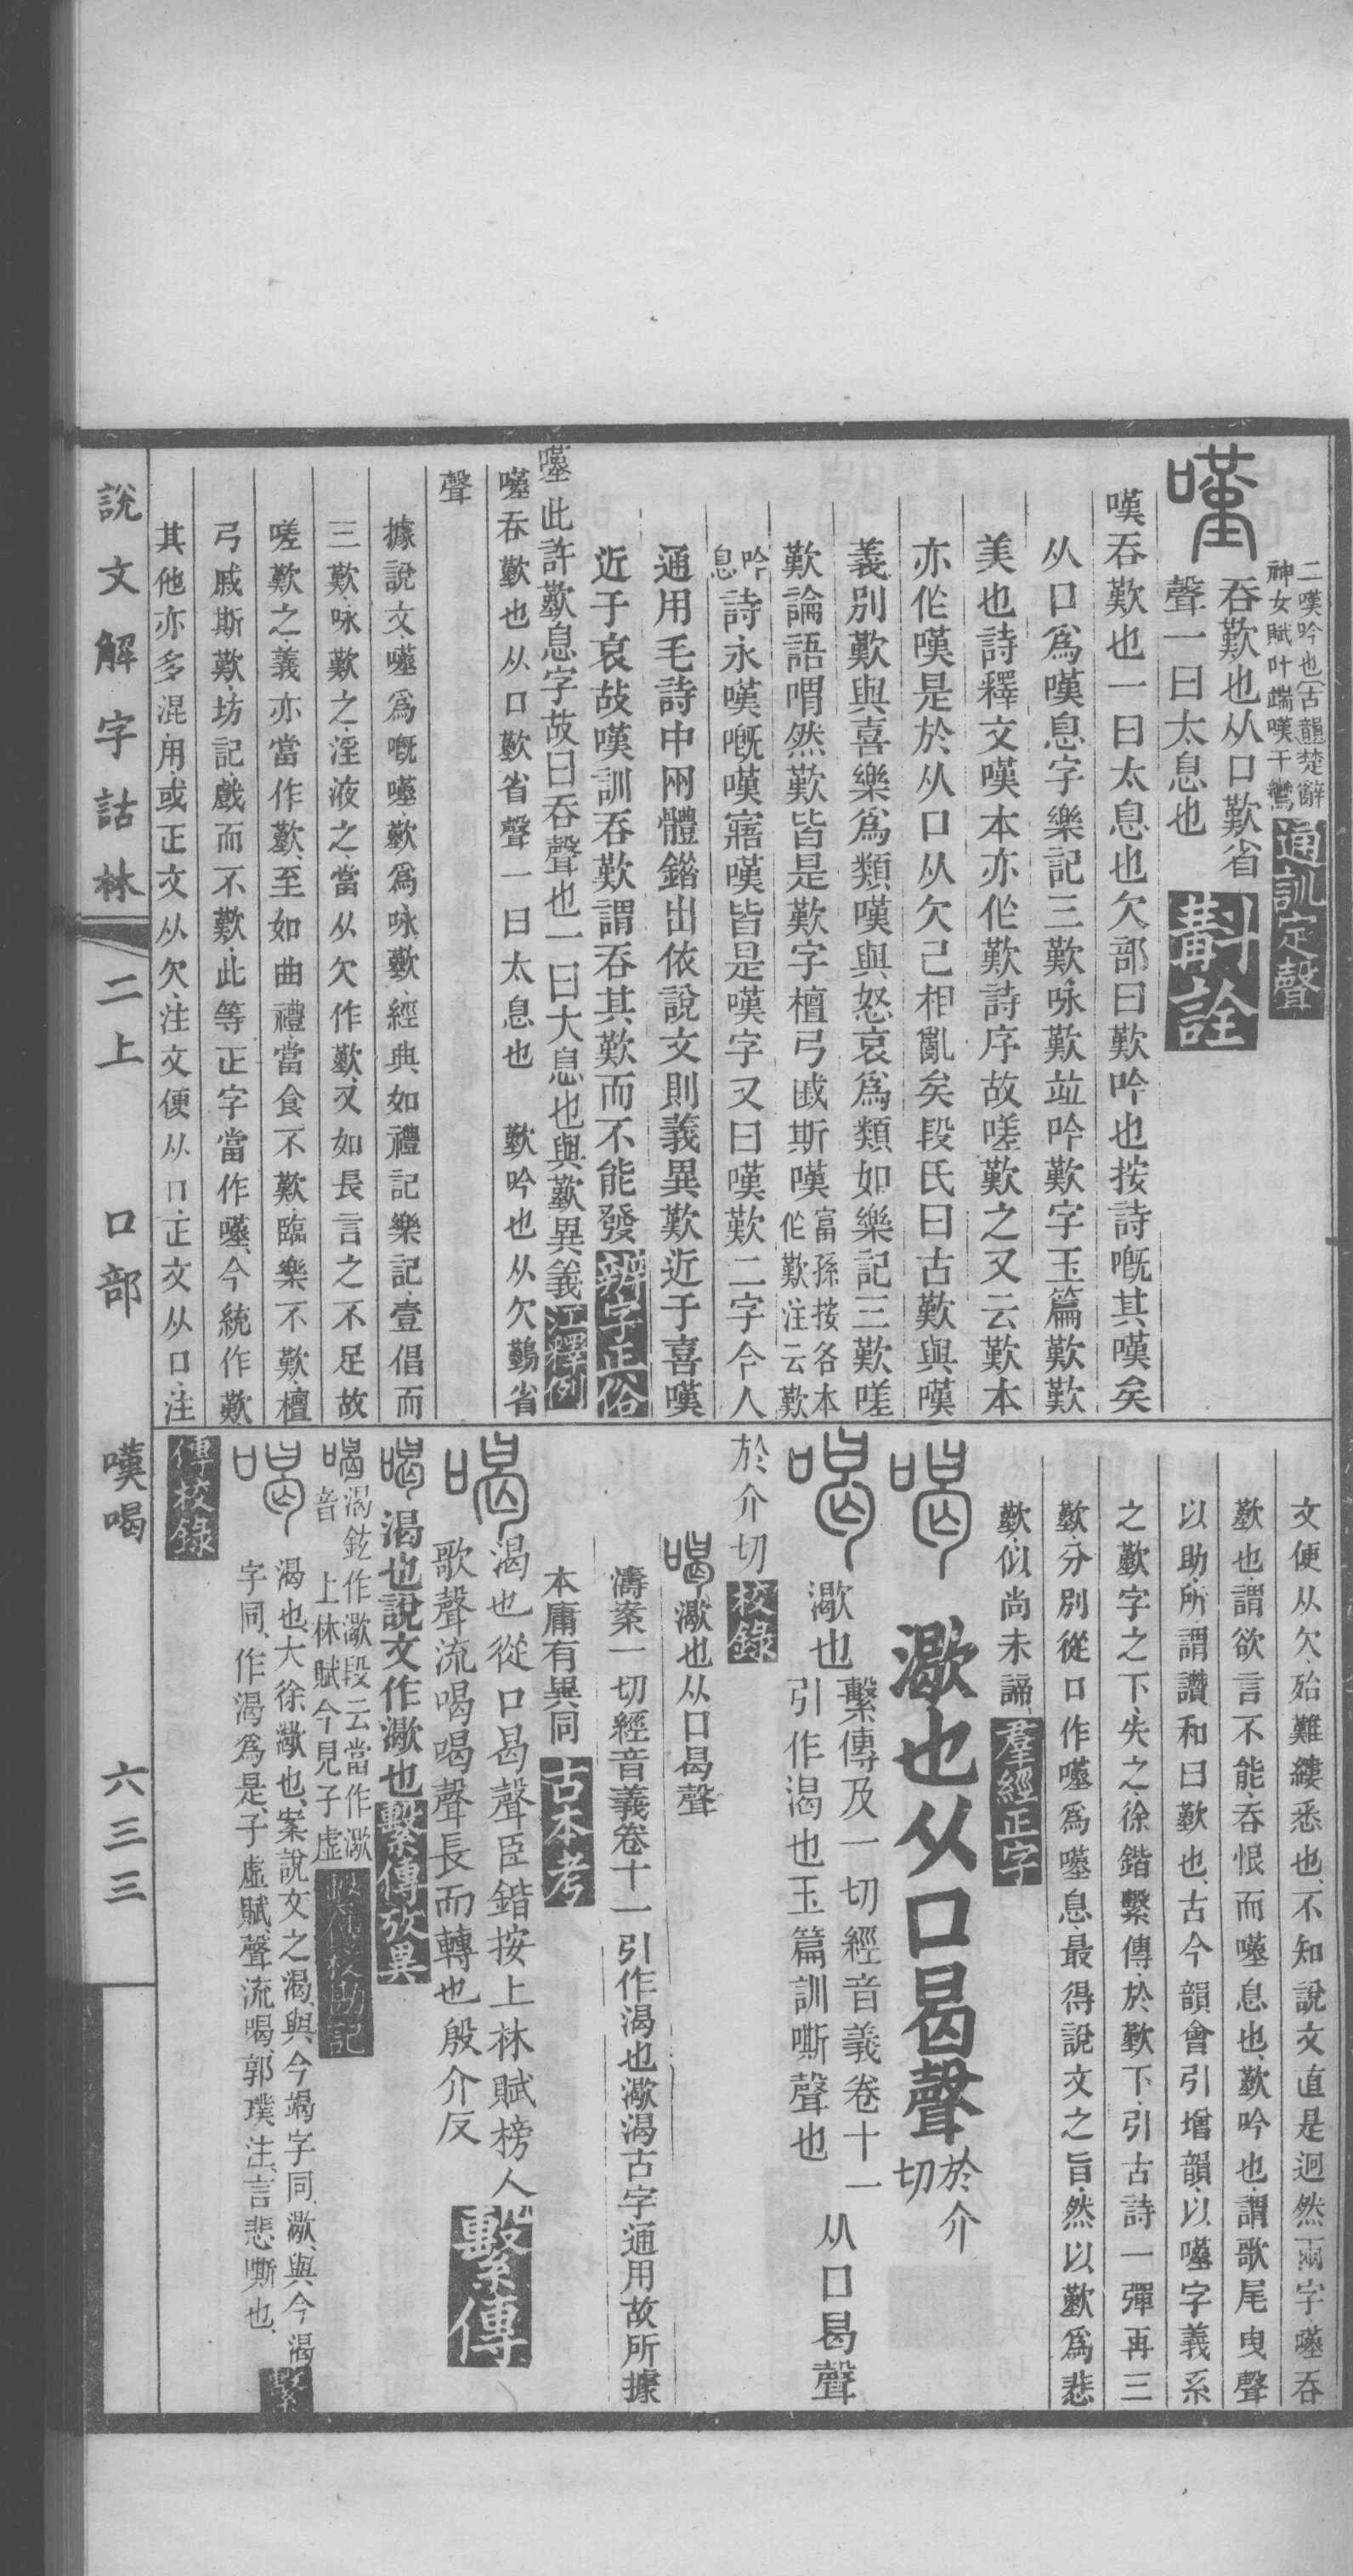 二嘆吟也古韻楚辭
神女賦叶端嘆干鸞
通訓定聲
嘆
吞歎也从口歎省
聲一曰太息也
斠詮
嘆吞歎也一曰太息也欠部曰歎吟也按詩嘅其嘆矣
从口爲嘆息字樂記三歎咏歎竝吟歎字玉篇歎歎
美也詩釋文嘆本亦作歎詩序故嗟歎之又云歎本
亦作嘆是於从口从欠己相亂矣段氏曰古歎與嘆
義別歎與喜樂爲類嘆與怒哀爲類如樂記三歎嗟
歎論語喟然歎皆是歎字檀弓戚斯嘆富孫按各本
作歎注云歎
吟息
詩永嘆嘅嘆寤嘆皆是嘆字又曰嘆歎二字今人
通用毛詩中兩體錯出依說文則義異歎近于喜嘆
近于哀故嘆訓吞歎謂吞其歎而不能發辨字正俗
嘆此許歎息字故曰吞聲也一曰大息也與歎異義江釋例
嘆吞歎也从口歎省聲一曰太息也 歎吟也从欠鷬省
聲
據說文嘆爲嘅嘆歎爲咏歎經典如禮記樂記壹倡而
三歎咏歎之淫液之當从欠作歎又如長言之不足故
嗟歎之義亦當作歎至如曲禮當食不歎臨樂不歎檀
弓戚斯歎坊記戲而不歎此等正字當作嘆今統作歎
其他亦多混用或正文从欠注文便从口正文从口注
文便从欠殆難縷悉也不知說文直是迥然兩字嘆吞
歎也謂欲言不能吞恨而嘆息也歎吟也謂歌尾曳聲
以助所謂讚和曰歎也古今韻會引增韻以嘆字義系
之歎字之下失之徐鍇繫傳於歎下引古詩一彈再三
歎分別從口作嘆爲嘆息最得說文之旨然以歎爲悲
歎似尚未諦羣經正字
喝 㵣也从口曷聲於介切
喝 㵣也繫傳及一切經音義卷十一
引作渴也玉篇訓嘶聲也 从口曷聲
於介切校錄
喝㵣也从口曷聲
濤案一切經音義卷十一引作渴也㵣渴古字通用故所據
本庸有異同古本考
喝 渴也從口曷聲臣鍇按上林賦榜人
歌聲流喝喝聲長而轉也殷介反繫傳
喝渴也說文作㵣也繫傳攷異
喝渴鉉作㵣段云當作㵣
音 上林賦今見子虛
繫傳校勘記
喝 渴也大徐㵣也案說文之渴與今竭字同㵣與今渴
字同作渴爲是子虛賦聲流喝郭璞注言悲嘶也
繫
傳校錄
說文解字詁林 二上 口部 嘆喝 六三三